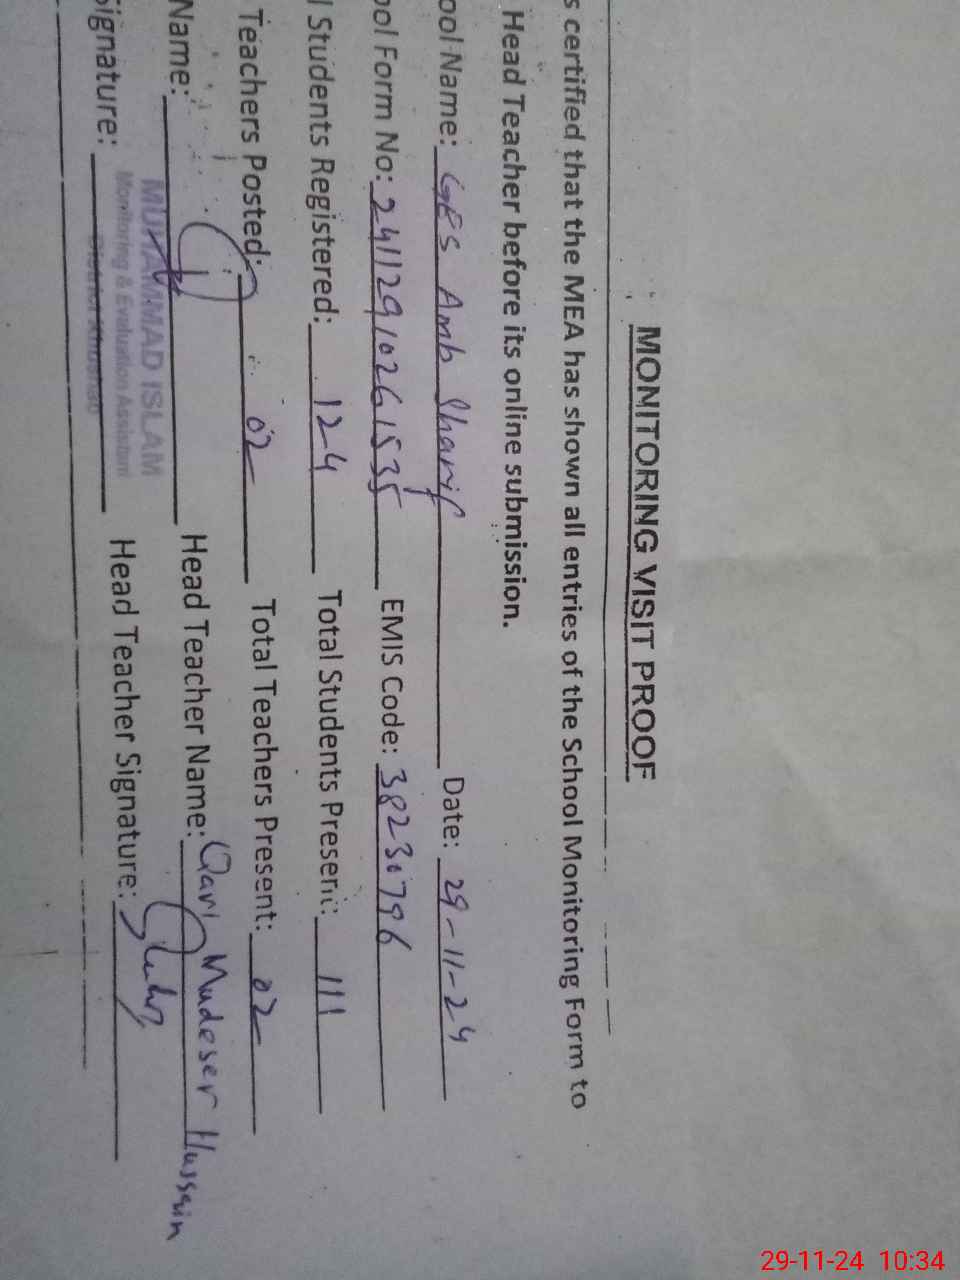 MONITORING VISIT PROOF
s certified that the MEA has shown all entries of the School Monitoring Form to
Head Teacher before its online submission.
ool Name: GES Amb Sharif Date: 29-11-24
ool Form No: 24112910261535 EMIS Code: 38230796
l Students Registered: 124 Total Students Present: 111
Teachers Posted: 02 Total Teachers Present: 02
Name: Head Teacher Name: Qari Mudeser Hussain
Signature: Head Teacher Signature:
MUHAMMAD ISLAM
Monitoring & Evaluation Assistant
District Khushab
29-11-24 10:34